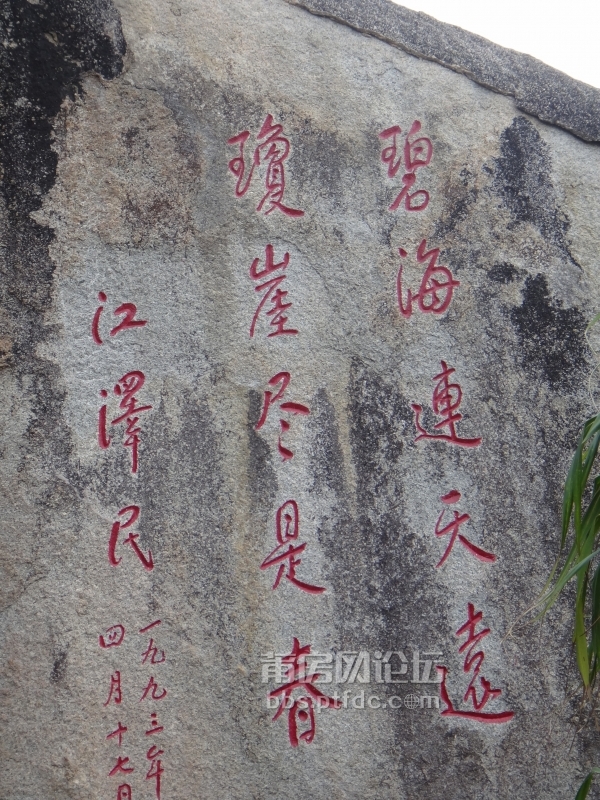 碧海連天遠
瓊崖尽是春
江澤民
一九九三年
四月十七日
莆房网论坛
bbs.ptfdc.com